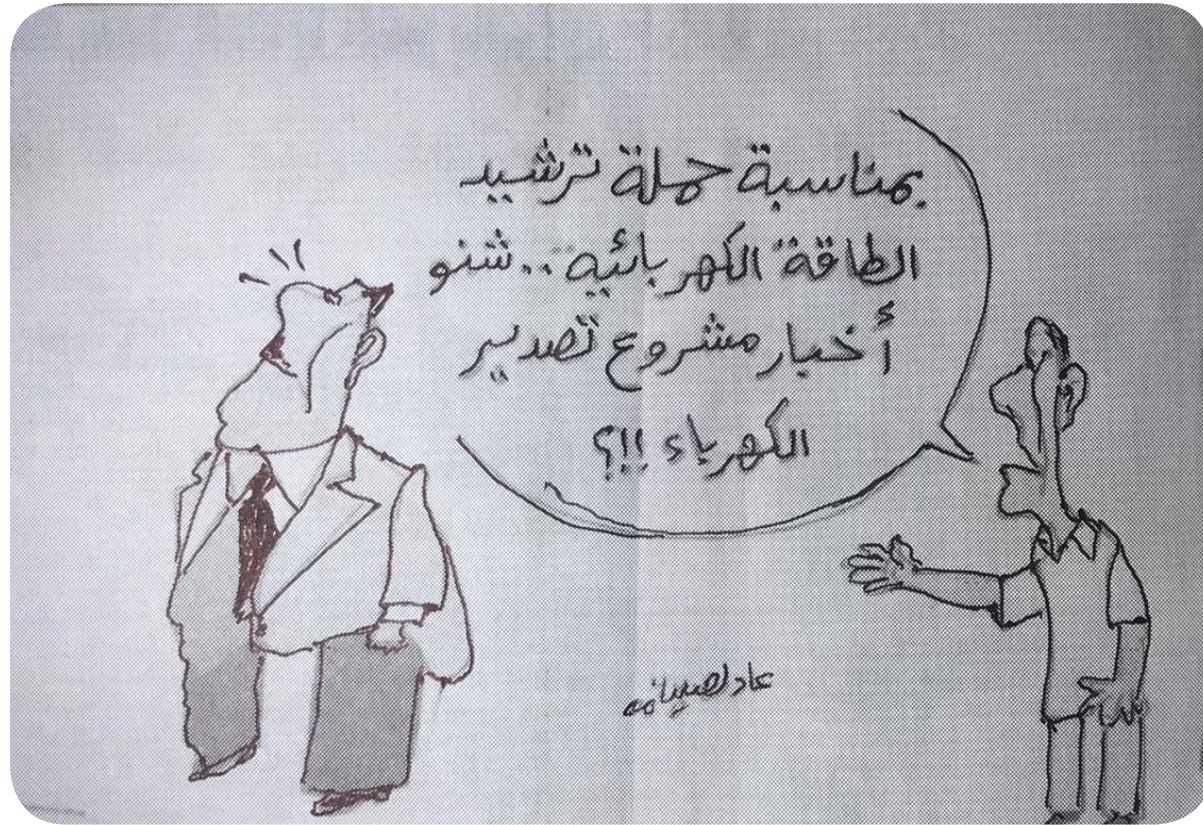 بمناسبة حملة ترشيد
الطاقة الكهربائية.. شنو
أخبار مشروع تصدير
الكهرباء !!؟